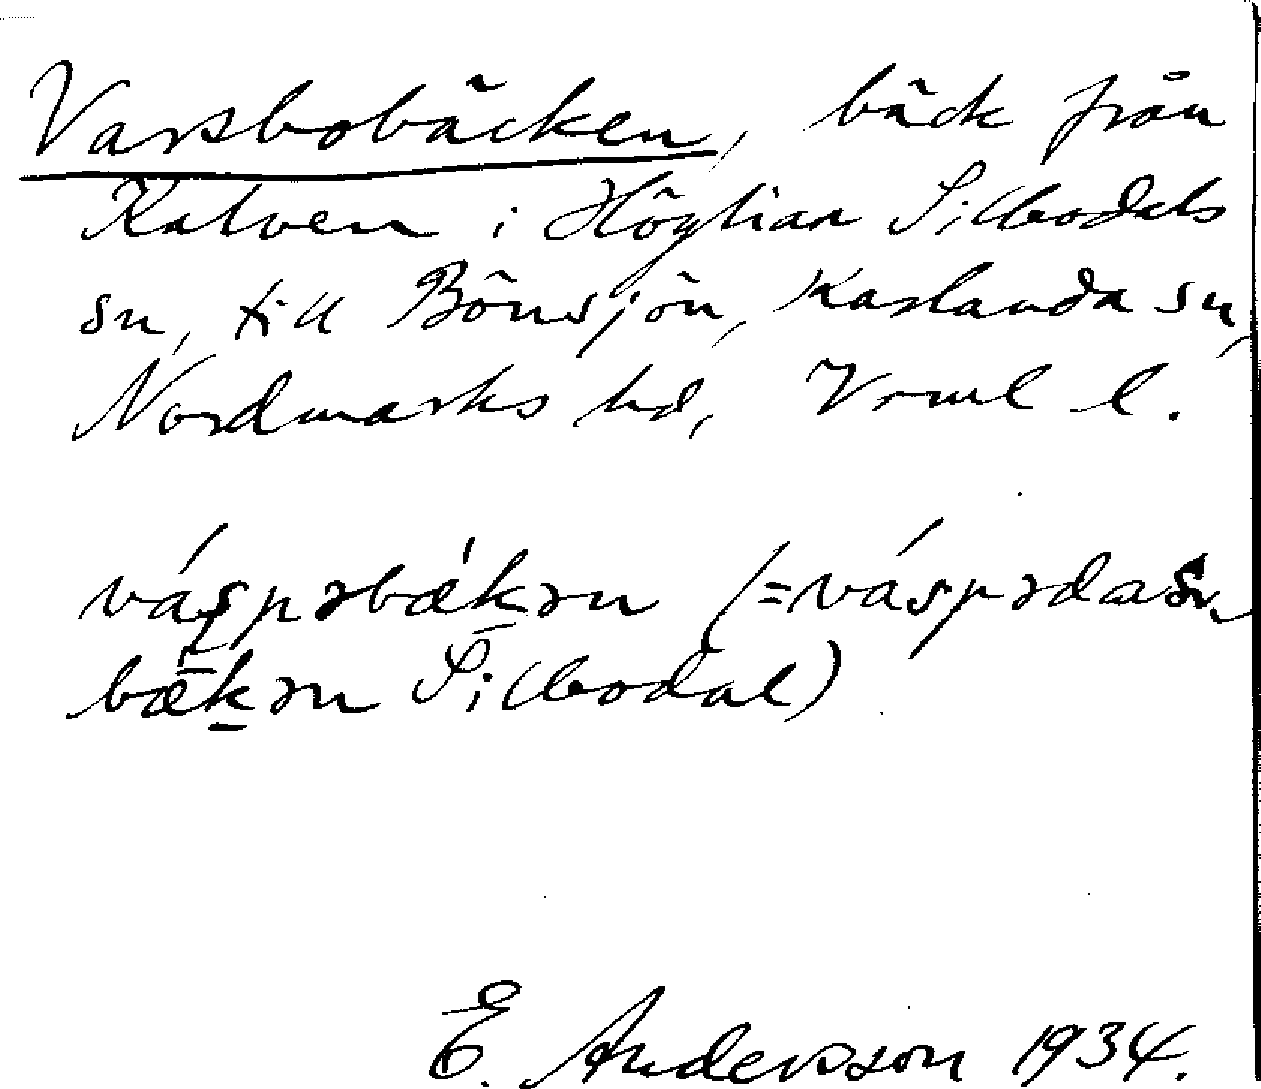 Varsbobäcken, bäck från
Kalven i Höglian Sillbodals
sn, till Bönsjön, Karlanda sn,
Nordmarks hd, Vrml l.
váspəbækən (=váspədals-
bækən Sillbodal)
E. Andersson 1934.